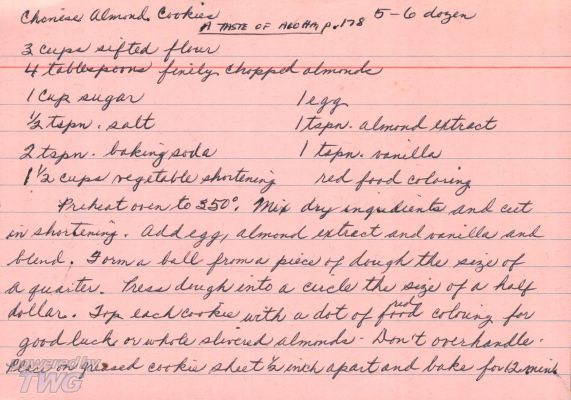 Chinese Almond Cookies 5-6 dozen
A TASTE OF ALOHA, p. 178
3 cups sifted flour
4 tablespoons finely chopped almonds
1 cup sugar 1 egg
½ tspn. salt 1 tspn. almond extract
2 tspn. baking soda 1 tspn. vanilla
1 ½ cups vegetable shortening red food coloring
Preheat oven to 350°. Mix dry ingredients and cut
in shortening. Add egg, almond extract and vanilla and
blend. Form a ball from a piece of dough the size of
a quarter. Press dough into a circle the size of a half
dollar. Top each cookie with a dot of red food coloring for
good luck or whole slivered almonds. Don't overhandle.
Place on greased cookie sheet ½ inch apart and bake for 12 mins
powered by
TWG